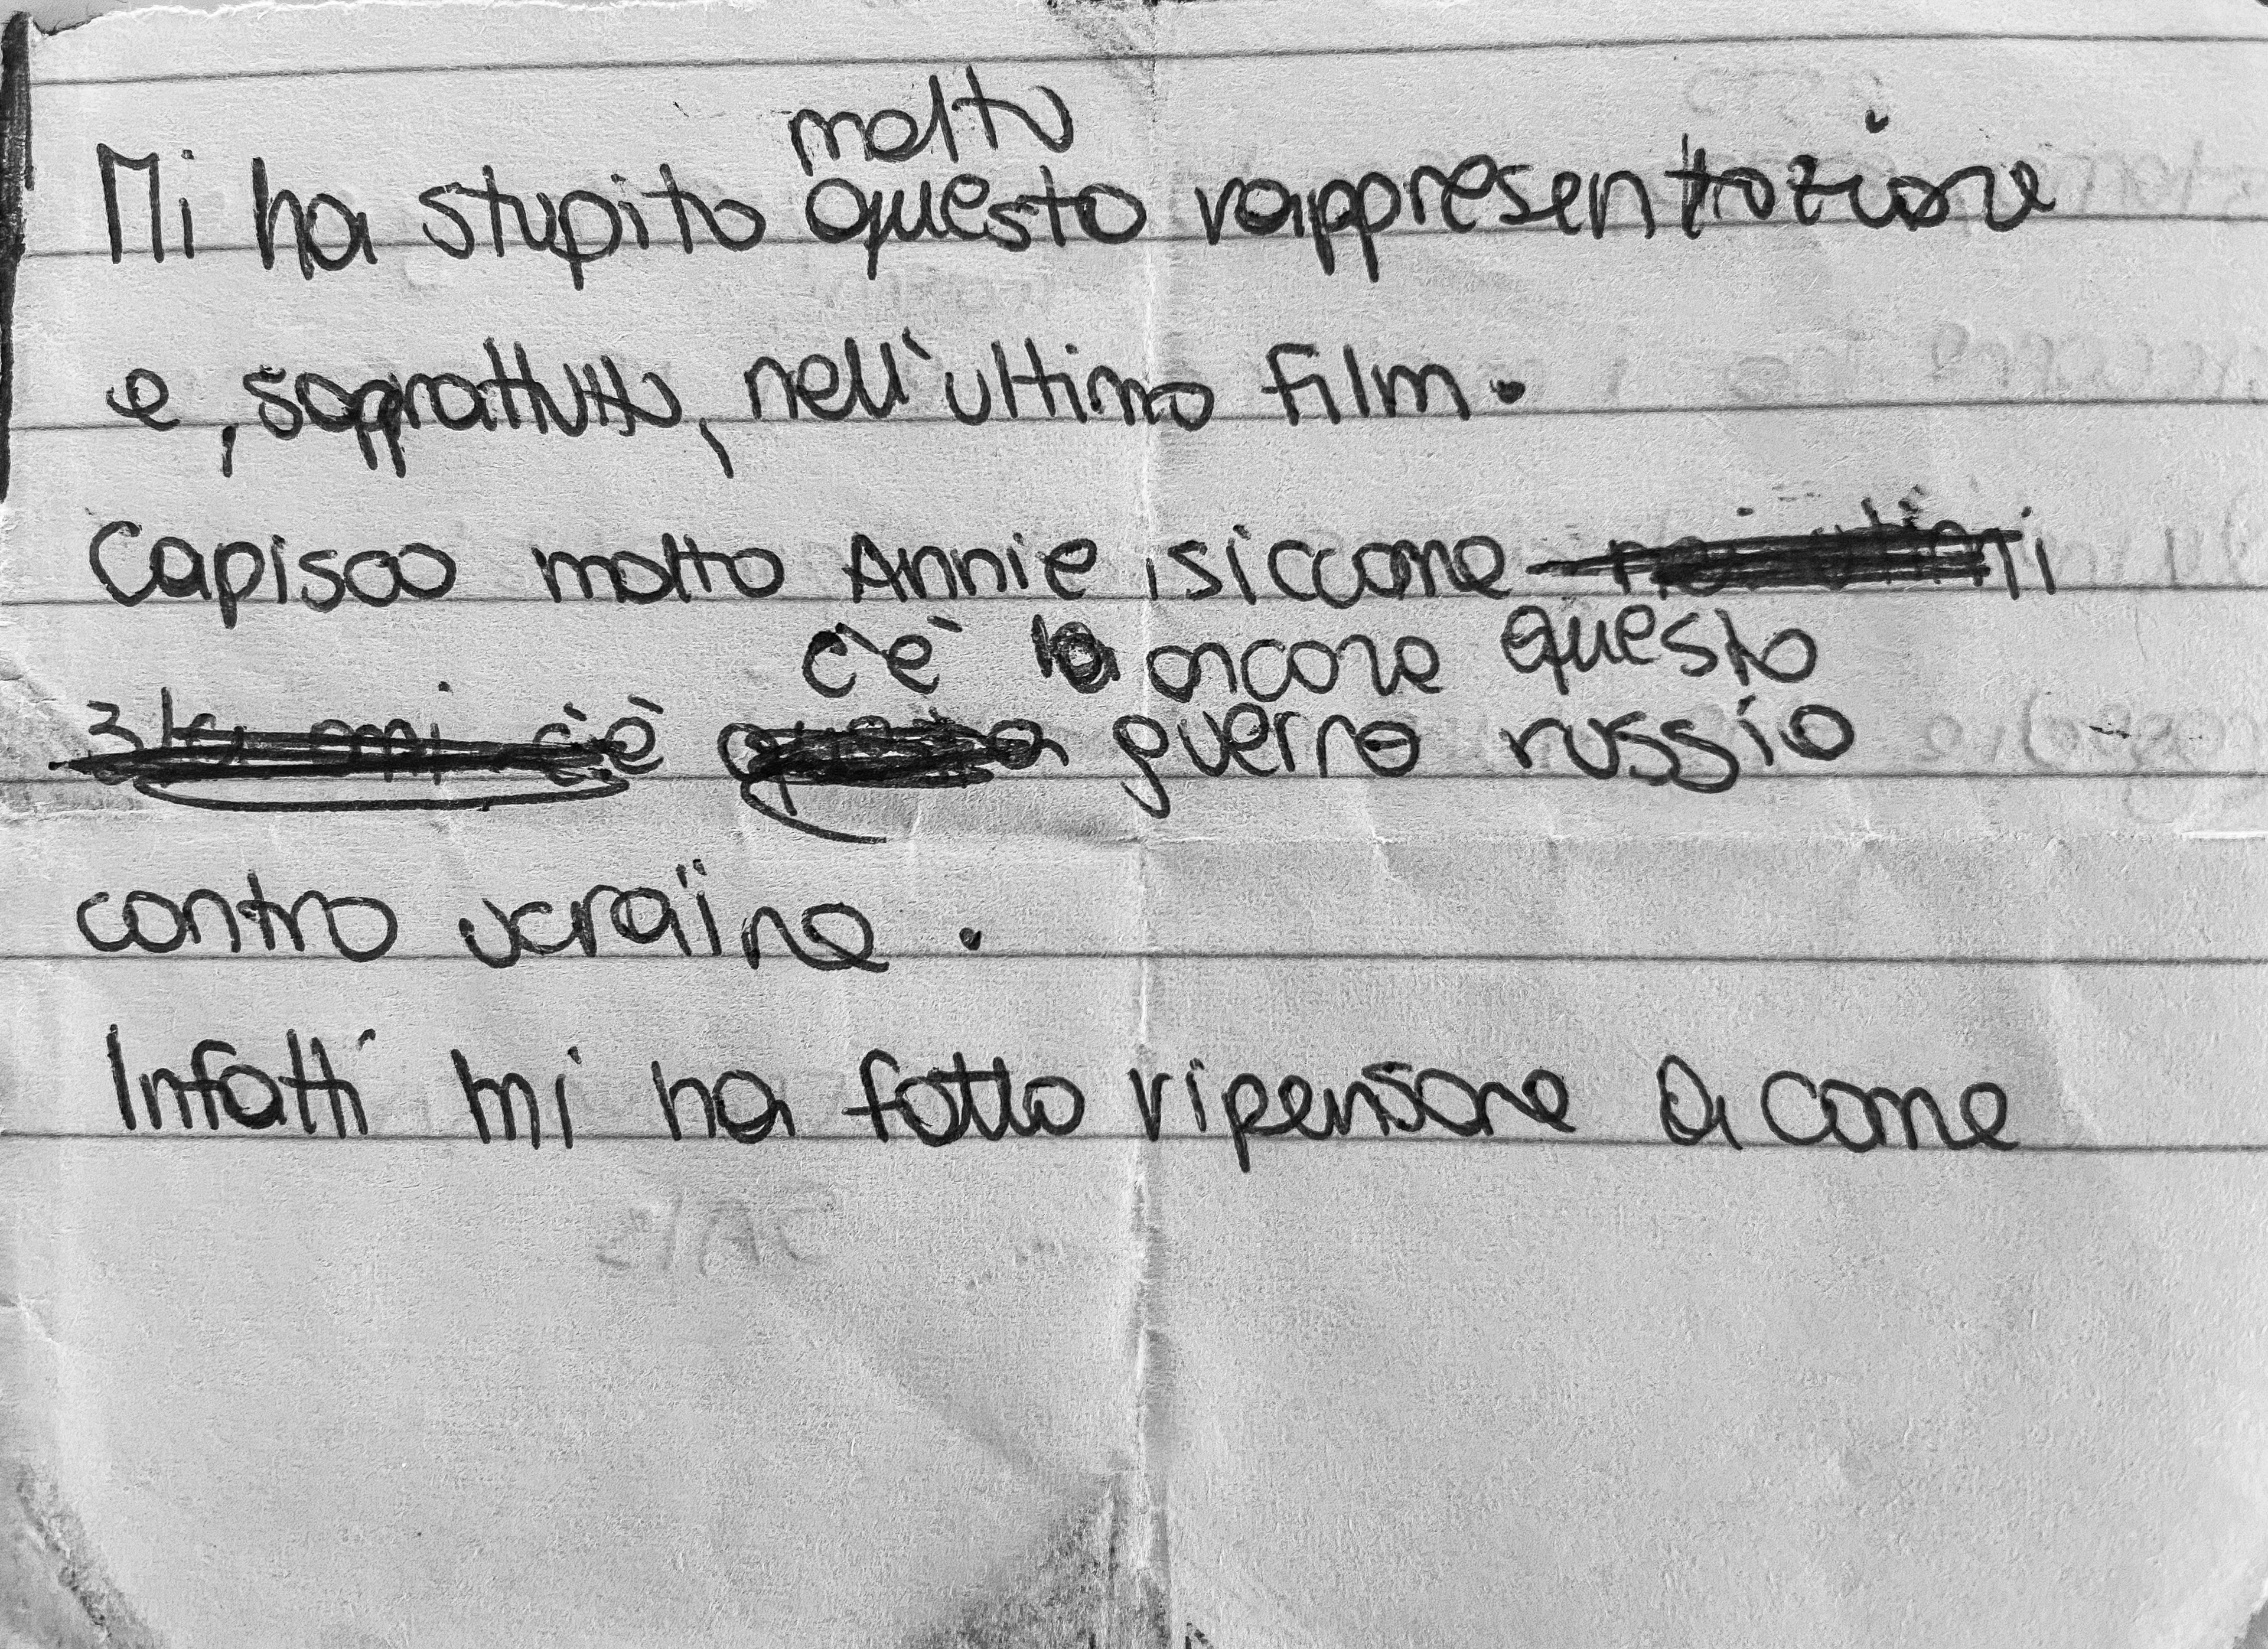 molto
Mi ha stupito questa rappresentazione
e, soprattutto, nell'ultimo film.
Capisco molto Annie siccome
c'è ancora questa
guerra russia
contro ucraina.
Infatti mi ha fatto ripensare a come